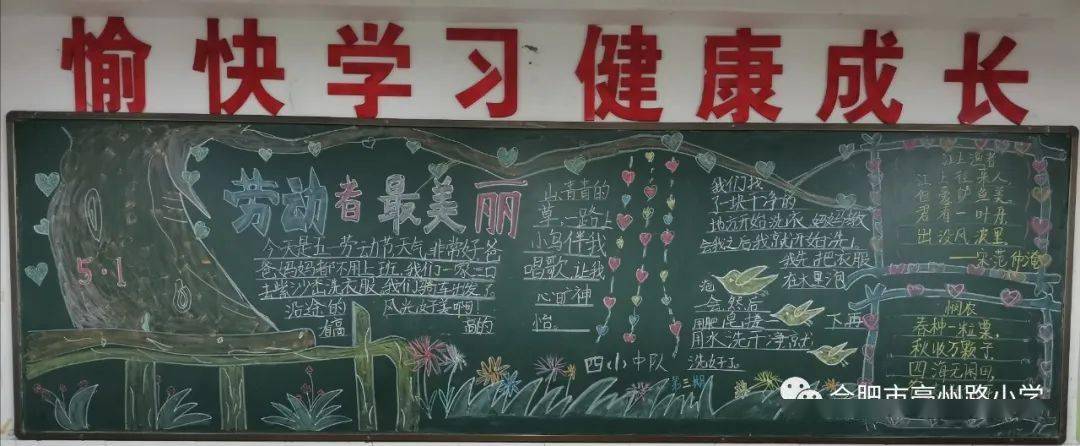 愉快学习健康成长
劳动者最美丽
5·1
今天是五一劳动节天气非常好爸
爸妈妈都不用上班，我们一家三口
去紫沙河洗衣服，我们骑车出发了
沿途的
风光好美啊
有高
高的
山，青青的
草，一路上
小鸟伴我
唱歌，让我
心旷神
怡。
我们找
了一块干净的
地方开始洗衣，妈妈教
会我之后我就开始洗。
我先把衣服
在水里泡
泡
会，然后
用肥皂搓一
下再
用水洗干净就
洗好了。
四(小)中队
第三期
江上渔者
江上往来人，
但爱鲈鱼美。
君看一叶舟，
出没风波里。
——宋 范仲淹
悯农
春种一粒粟，
秋收万颗子。
四海无闲田，
合肥市亳州路小学